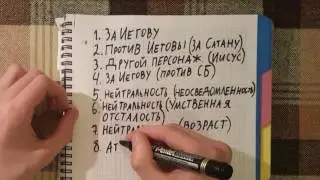 1. ЗА ИЕГОВУ
2. ПРОТИВ ИЕГОВЫ (ЗА САТАНУ)
3. ДРУГОЙ ПЕРСОНАЖ (ИИСУС)
4. ЗА ИЕГОВУ (ПРОТИВ СБ)
5. НЕЙТРАЛЬНОСТЬ (НЕОСВЕДОМЛЕННОСТЬ)
6. НЕЙТРАЛЬНОСТЬ (УМСТВЕННАЯ
ОТСТАЛОСТЬ)
7. НЕЙТРАЛ (ВОЗРАСТ)
8. АТ